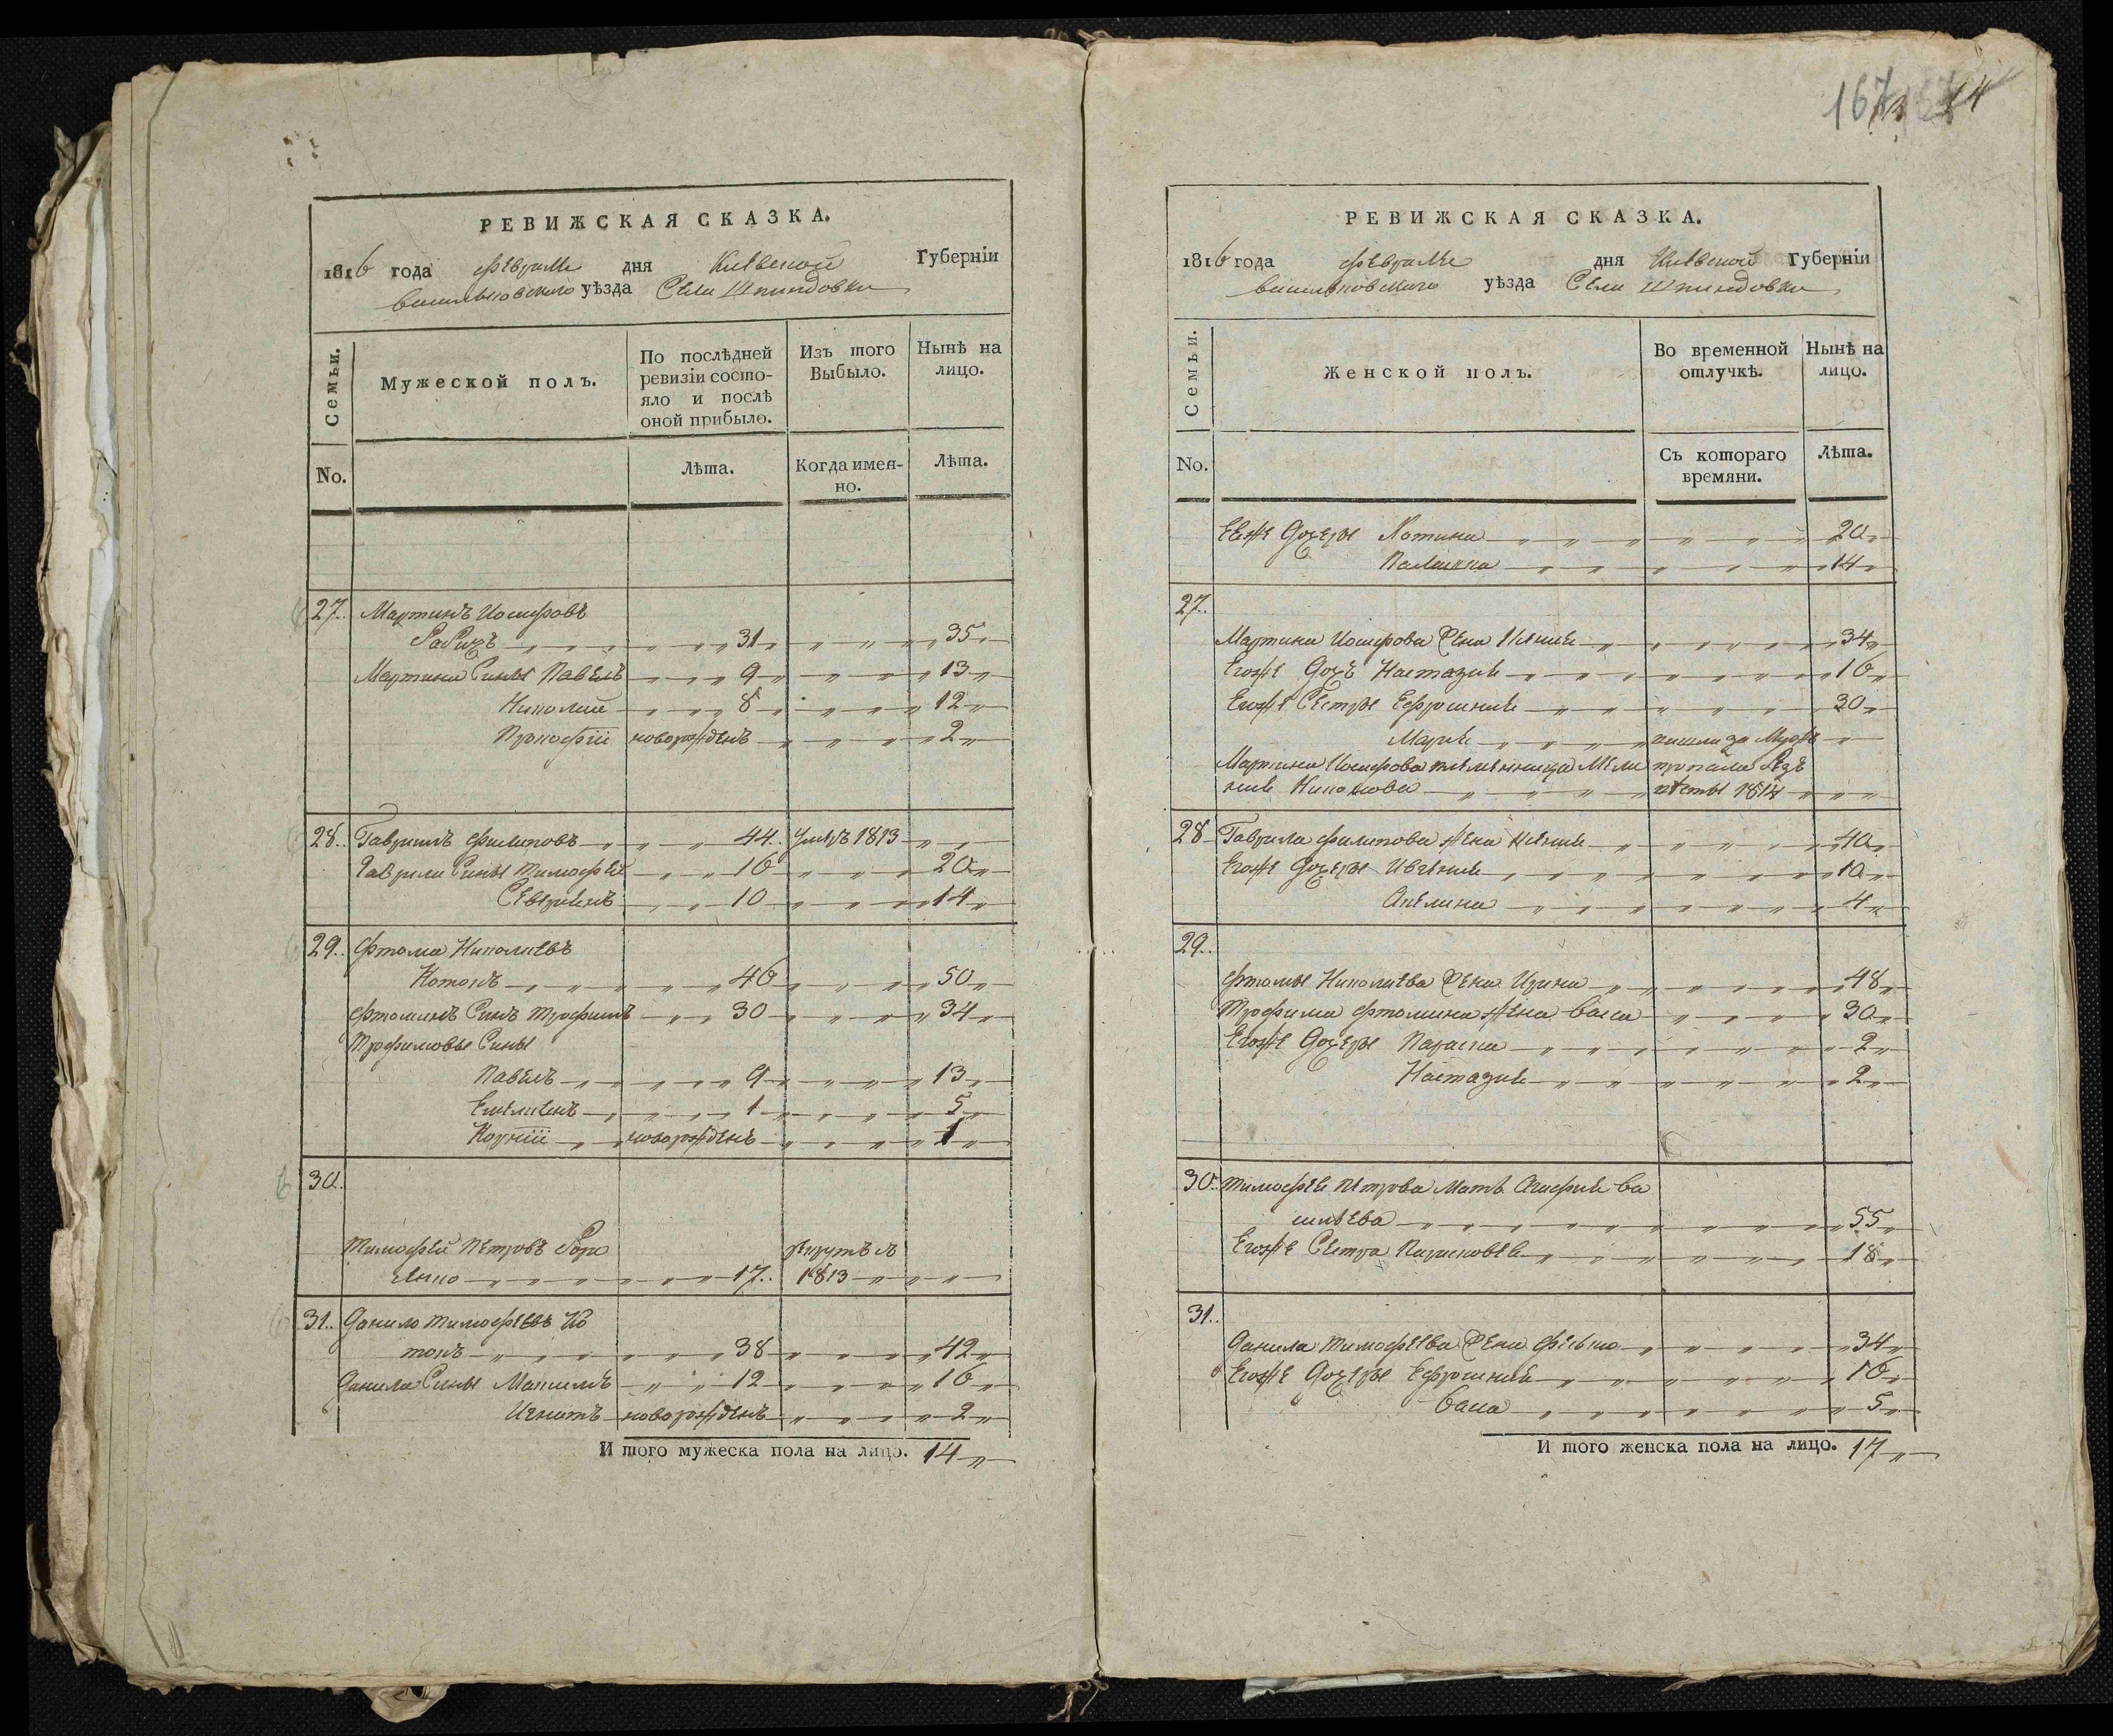 167
РЕВИЖСКАЯ СКАЗКА.
1816 года февраля дня Киевской Губерніи
васильковского уѣзда Села Шпиндовки
Семьи.
Мужеской полъ.
По послѣдней ревизіи состояло и послѣ оной прибыло.
Изъ того Выбыло.
Нынѣ на лицо.
No.
Лѣта.
Когда именно.
Лѣта.
27. Мартинъ Иосифовъ
31 35
Мартина Сины Павелъ 9 13
Николай 8 12
Прокофій новорожденъ 2
28. Гаврилъ Филиповъ 44 умеръ 1813
Гаврили Сины Тимофей 16 20
Северіянъ 10 14
29. Фтома Николаевъ
Котокъ 46 50
Фтоминъ Синъ Трофимъ 30 34
Трофимовы Сины
Павелъ 9 13
Емелиянъ 1 5
Корній новорожденъ 1
30.
Тимофей Петровъ
17 1813
31. Данило Тимофеевъ Ко
токъ 38 42
Данила Сины Максимъ 12 16
Игнатъ новорожденъ 2
И того мужеска пола на лицо. 14
РЕВИЖСКАЯ СКАЗКА.
1816 года февраля дня Киевской Губерніи
васильковского уѣзда Села Шпиндовки
Семьи.
Женской полъ.
Во временной отлучкѣ.
Нынѣ на лицо.
No.
Съ котораго времяни.
Лѣта.
Ееже Дочеры Мотина 20
Палашка 14
27.
Мартина Иосифова Жена Ксения 34
Егоже Дочъ Настазия 16
Егоже Сестры Ефросиния 30
Мария вишли за Мужъ
Мартина Иосифова племянница Мела пропала безъ
ния Никонова вѣсты 1814
28 Гаврила Филипова жена Ксения 40
Егоже Дочеры Ивгения 10
Акелина 4
29.
Фтомы Николаева Жена Ирина 48
Трофима Фтомина жена Васса 30
Егоже Дочеры Параска 2
Настазия 2
30. Тимофея Петрова Мать Агафия Ва
сильева 55
Егоже Сестра Парасковея 18
31.
Данила Тимофеева Жена Фенно 34
Егоже Дочеры Ефросиния 16
Васса 5
И того женска пола на лицо. 17